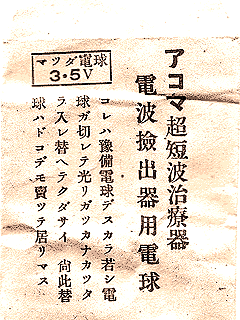 アコマ超短波治療器
電波撿出器用電球
マツダ電球
3.5V
コレハ豫備電球デスカラ若シ電
球ガ切レテ光リガツカナカツタ
ラ入レ替ヘテクダサイ 尙此替
球ハドコデモ賣ツテ居リマス